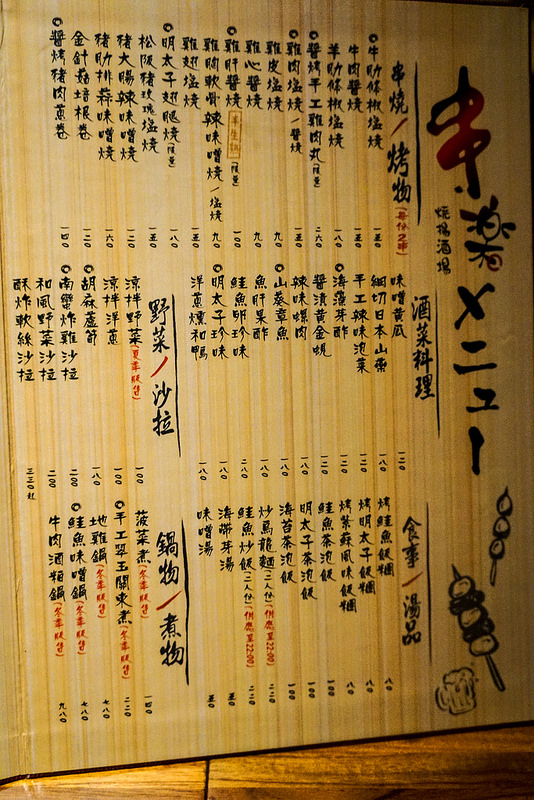 串樂メニュー
燒鳥酒場
串燒/烤物(每份2串)
◎牛肋條椒塩燒 一五〇
牛肉醬燒 一五〇
羊肋條椒塩燒 一八〇
◎醬烤手工雞肉丸(限量) 二六〇
◎雞肉塩燒/醬燒 一五〇
雞皮塩燒 九〇
雞心醬燒 九〇
◎雞肝醬燒 半生熟(限量) 一〇〇
雞胸軟骨辣味噌燒/塩燒 九〇
雞翅塩燒 一五〇
◎明太子翅腿燒(限量) 一八〇
松阪豬玫瑰塩燒 一五〇
豬大腸辣味噌燒 一二〇
豬肋排辣味噌燒 一六〇
金針菇培根卷 一二〇
◎醬烤豬肉蔥卷 一四〇
酒菜料理
味噌黃瓜 一二〇
細切日本山藥 一八〇
手工辣味泡菜 一二〇
◎海藻芽酢 一二〇
醬漬黃金蜆 一二〇
辣味螺肉 一八〇
◎山葵章魚 一八〇
魚肝果酢 一八〇
鮭魚卵珍味 一八〇
◎明太子珍味 一八〇
洋蔥燻和鴨 一八〇
野菜/沙拉
涼拌野菜(夏季販售) 一〇〇
涼拌洋蔥 一〇〇
◎胡麻蘆筍 一八〇
◎南蠻炸雞沙拉 二〇〇
和風野菜沙拉 二〇〇
酥炸軟絲沙拉 三三〇起
食事/湯品
烤鮭魚飯糰 八〇
烤明太子飯糰 八〇
烤紫蘇風味飯糰 八〇
鮭魚茶泡飯 一〇〇
明太子茶泡飯 一〇〇
海苔茶泡飯 一〇〇
炒烏龍麵(二人份)(供應至22:00) 二二〇
鮭魚炒飯(二人份)(供應至22:00) 二二〇
海帶芽湯 五〇
味噌湯 五〇
鍋物/煮物
菠菜煮(冬季販售) 一四〇
◎手工翠玉關東煮(冬季販售) 二二〇
地雞鍋(冬季販售) 七八〇
◎鮭魚味噌鍋(冬季販售) 七八〇
牛肉酒粕鍋(冬季販售) 九八〇